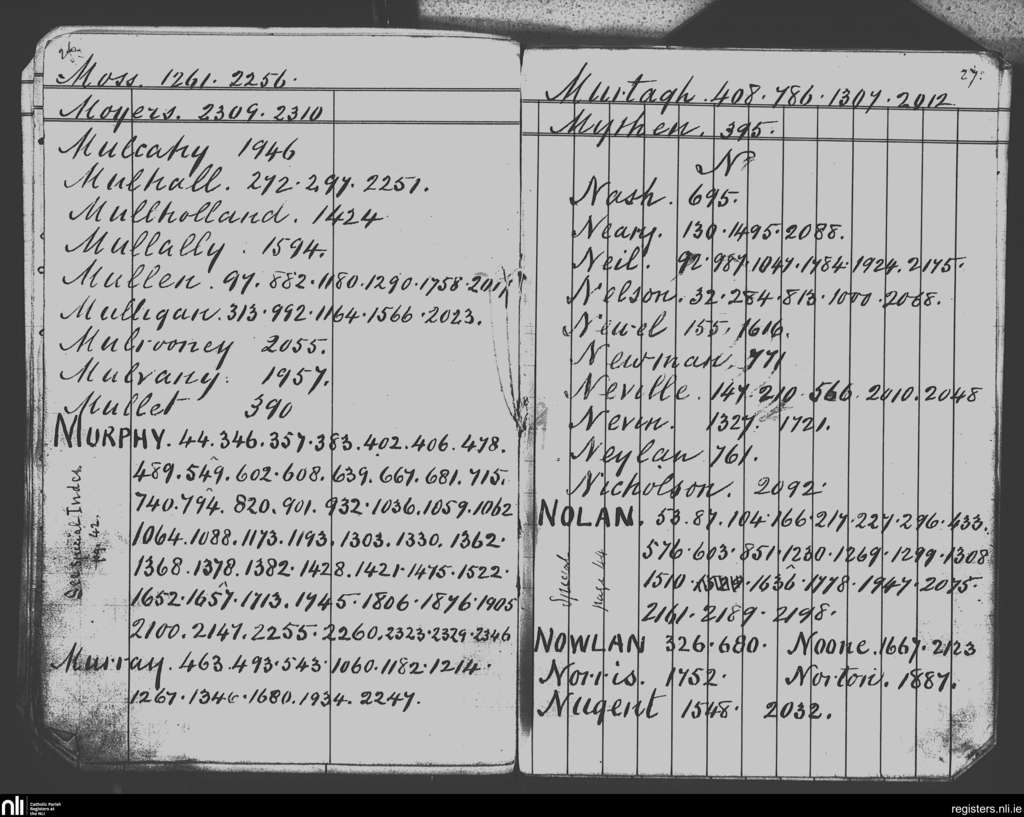 26.
Moss. 1261. 2256.
Moyers. 2309. 2310
Mulcahy 1946
Mulhall. 272. 297. 2251.
Mullholland. 1424
Mullally. 1594.
Mullen. 97. 882. 1180. 1290. 1758. 2017
Mulligan. 313. 992. 1164. 1566. 2023.
Mulrooney 2055.
Mulvany. 1957.
Mullet 390
MURPHY. 44. 346. 357. 383. 402. 406. 478.
489. 549. 602. 608. 639. 667. 681. 715.
740. 794. 820. 901. 932. 1036. 1059. 1062
1064. 1088. 1173. 1193. 1303. 1330. 1362.
1368. 1378. 1382. 1428. 1421. 1475. 1522.
1652. 1657. 1713. 1745. 1806. 1876. 1905
2100. 2147. 2255. 2260. 2323. 2329. 2346
See Special Index
pg. 42.
Murray. 463. 493. 543. 1060. 1182. 1214.
1267. 1346. 1680. 1934. 2247.
27.
Murtagh. 408. 786. 1307. 2012
Mythen. 395.
N
Nash. 695.
Neary. 130. 1495. 2088.
Neil. 92. 987. 1047. 1784. 1924. 2175.
Nelson. 32. 284. 813. 1000. 2068.
Newel 155. 1616.
Newman. 771
Neville. 147. 210. 566. 2010. 2048
Nevin. 1327. 1721.
Neylan 761.
Nicholson. 2092.
NOLAN. 53. 87. 104. 166. 217. 227. 296. 433.
576. 603. 851. 1230. 1269. 1299. 1308
1510. 1636. 1778. 1947. 2075.
2161. 2189. 2198.
Special
page 44
NOWLAN 326. 680. Noone. 1667. 2123
Norris. 1752. Norton. 1887.
Nugent 1548. 2032.
nli Catholic Parish
Registers at
the NLI
registers.nli.ie